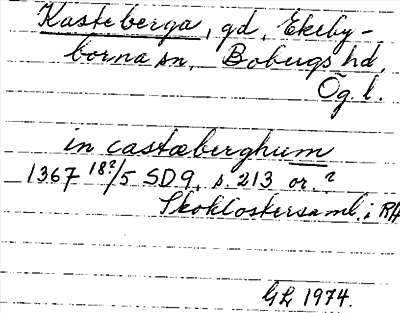 Kasteberga, gd, Ekeby-
borna sn, Bobergs hd,
Ög. l.
in castæberghum
1367 18?/5 SD 9, s. 213 or.?
Skoklostersaml. i RA
GL 1974.